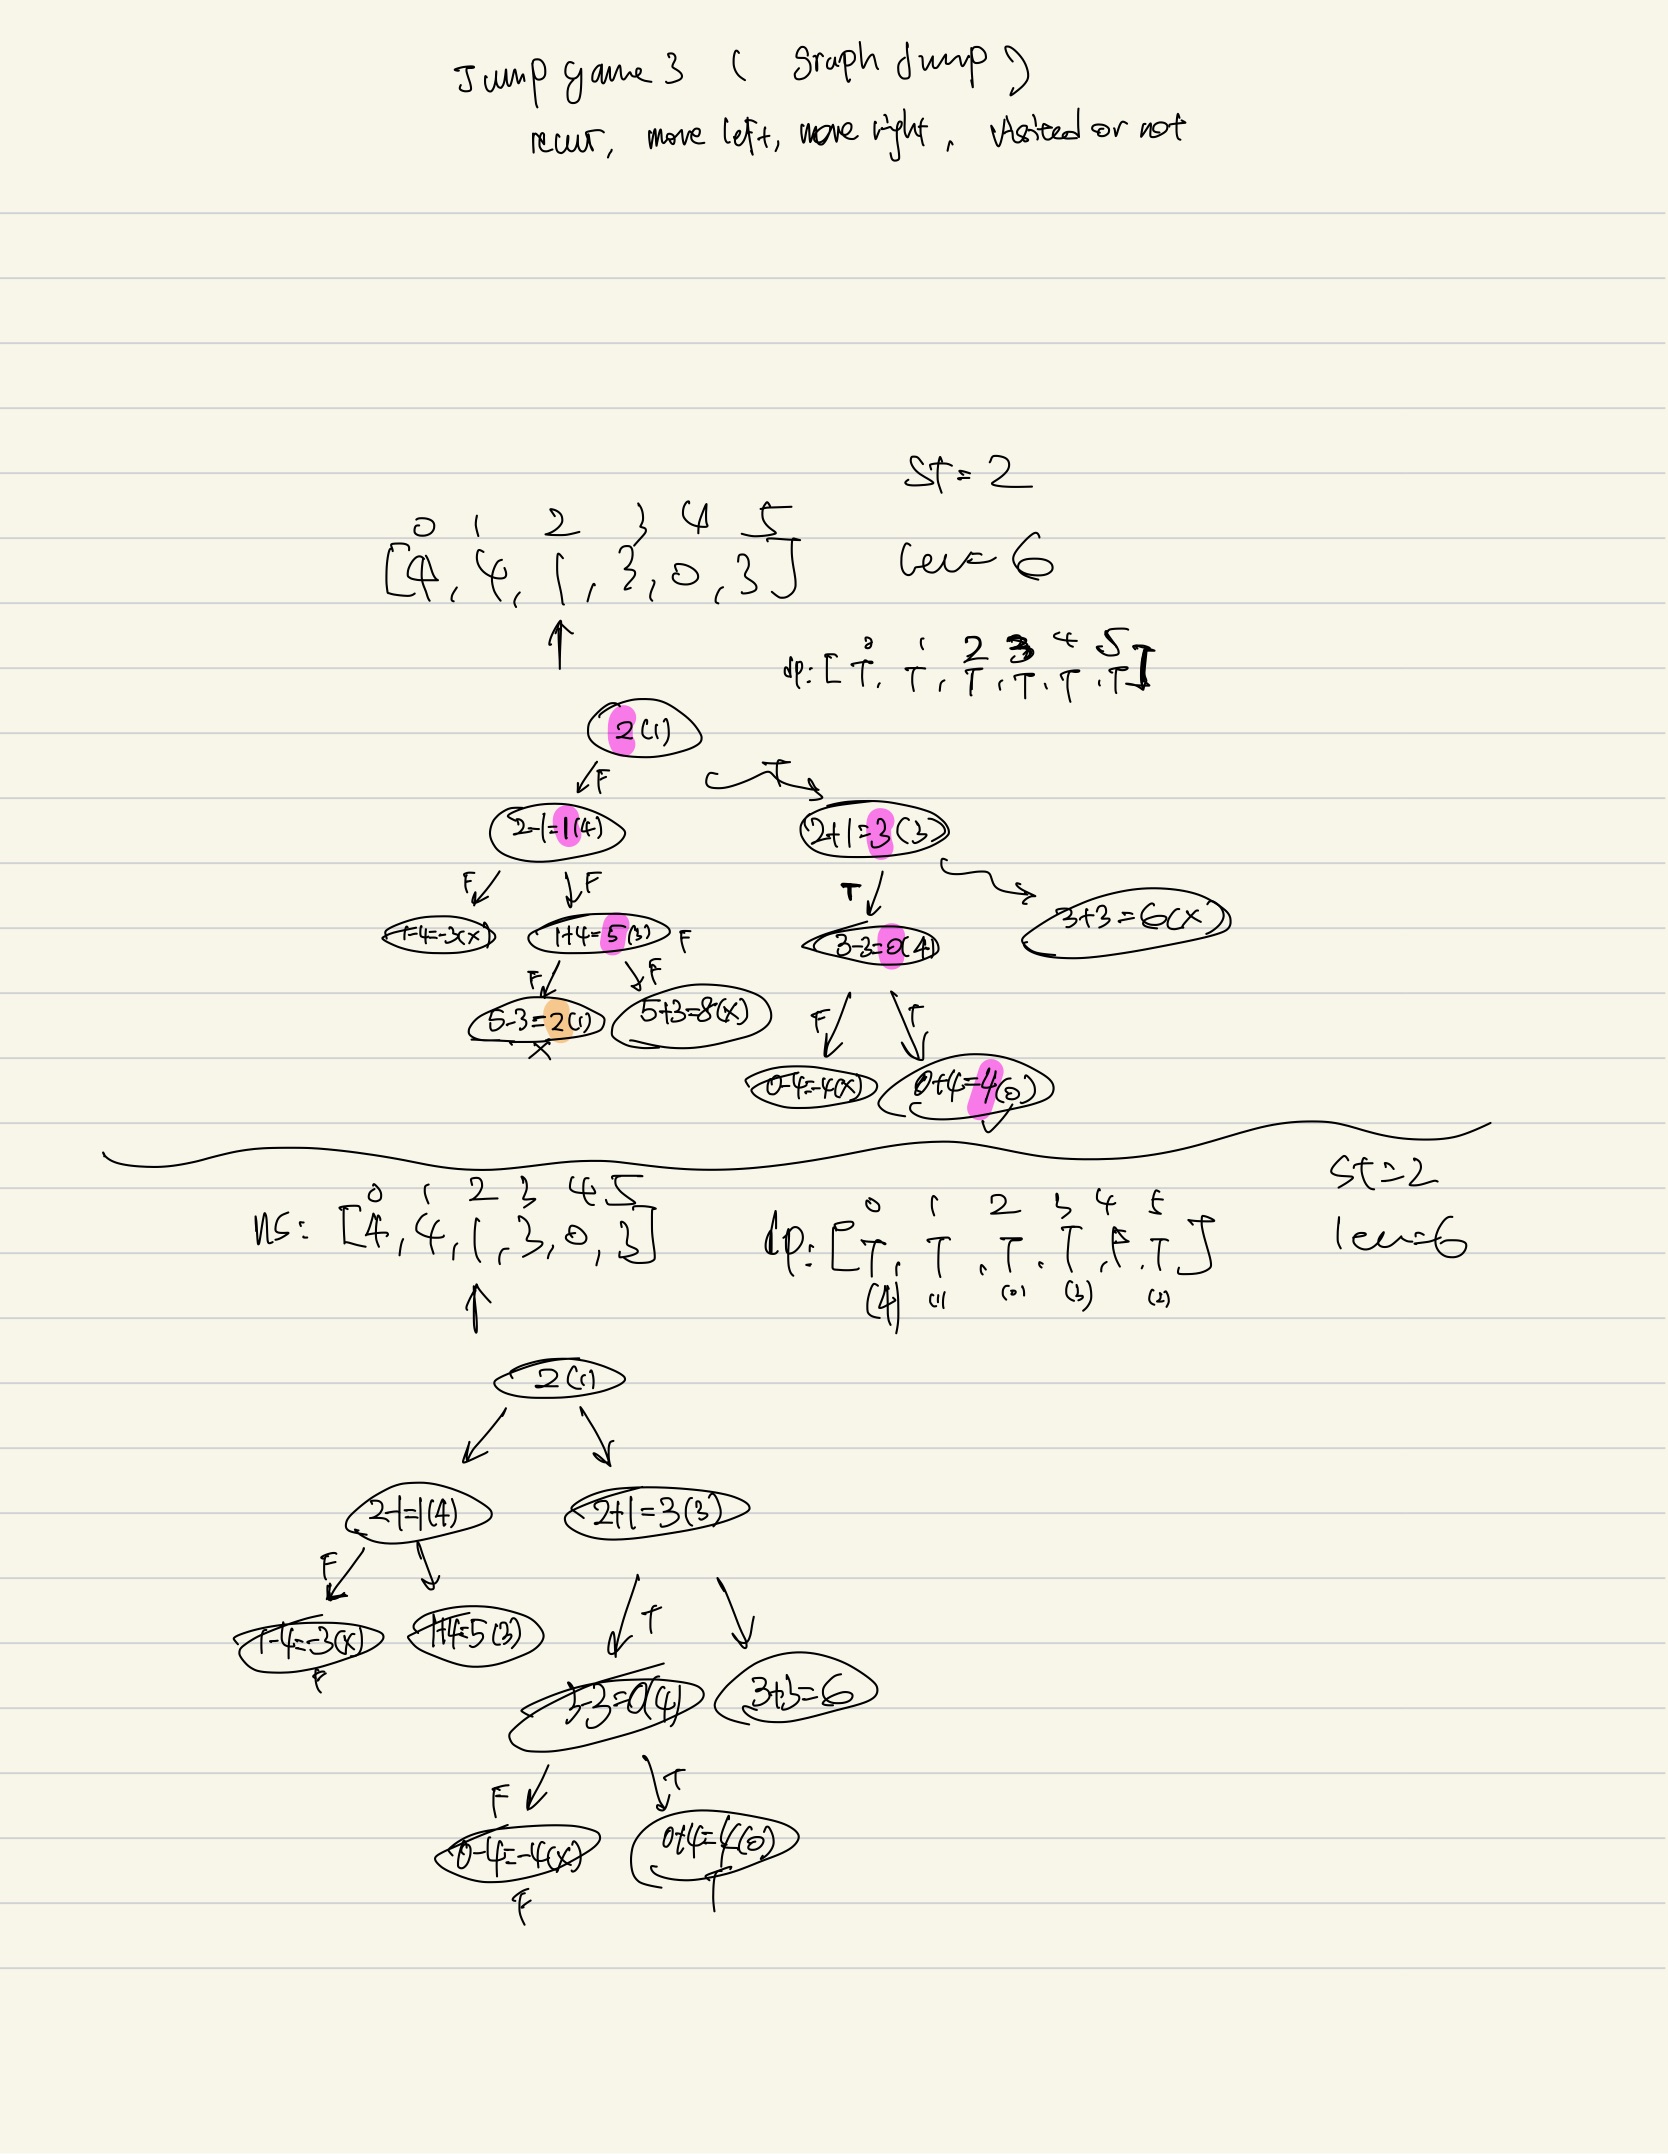 Jump game 3 ( Graph Jump )
recur, move left, move right, visited or not
St = 2
0 1 2 3 4 5
[4, 4, 1, 3, 0, 3]
len = 6
0 1 2 3 4 5
dp: [T, T, T, T, T, T]
2(1)
F T
2-1=1(4) 2+1=3(3)
F F T
1-4=-3(x) 1+4=5(3) F 3-3=0(4) 3+3=6(x)
F F F T
5-3=2(1) 5+3=8(x)
x
0-4=-4(x) 0+4=4(0)
St=2
0 1 2 3 4 5
ns: [4, 4, 1, 3, 0, 3]
0 1 2 3 4 5
dp: [T, T, T, T, F, T]
(4) (1) (0) (3) (2)
len=6
2(1)
2-1=1(4) 2+1=3(3)
F T
1-4=-3(x) 1+4=5(3)
F
3-3=0(4) 3+3=6
F T
0-4=-4(x) 0+4=4(0)
F T